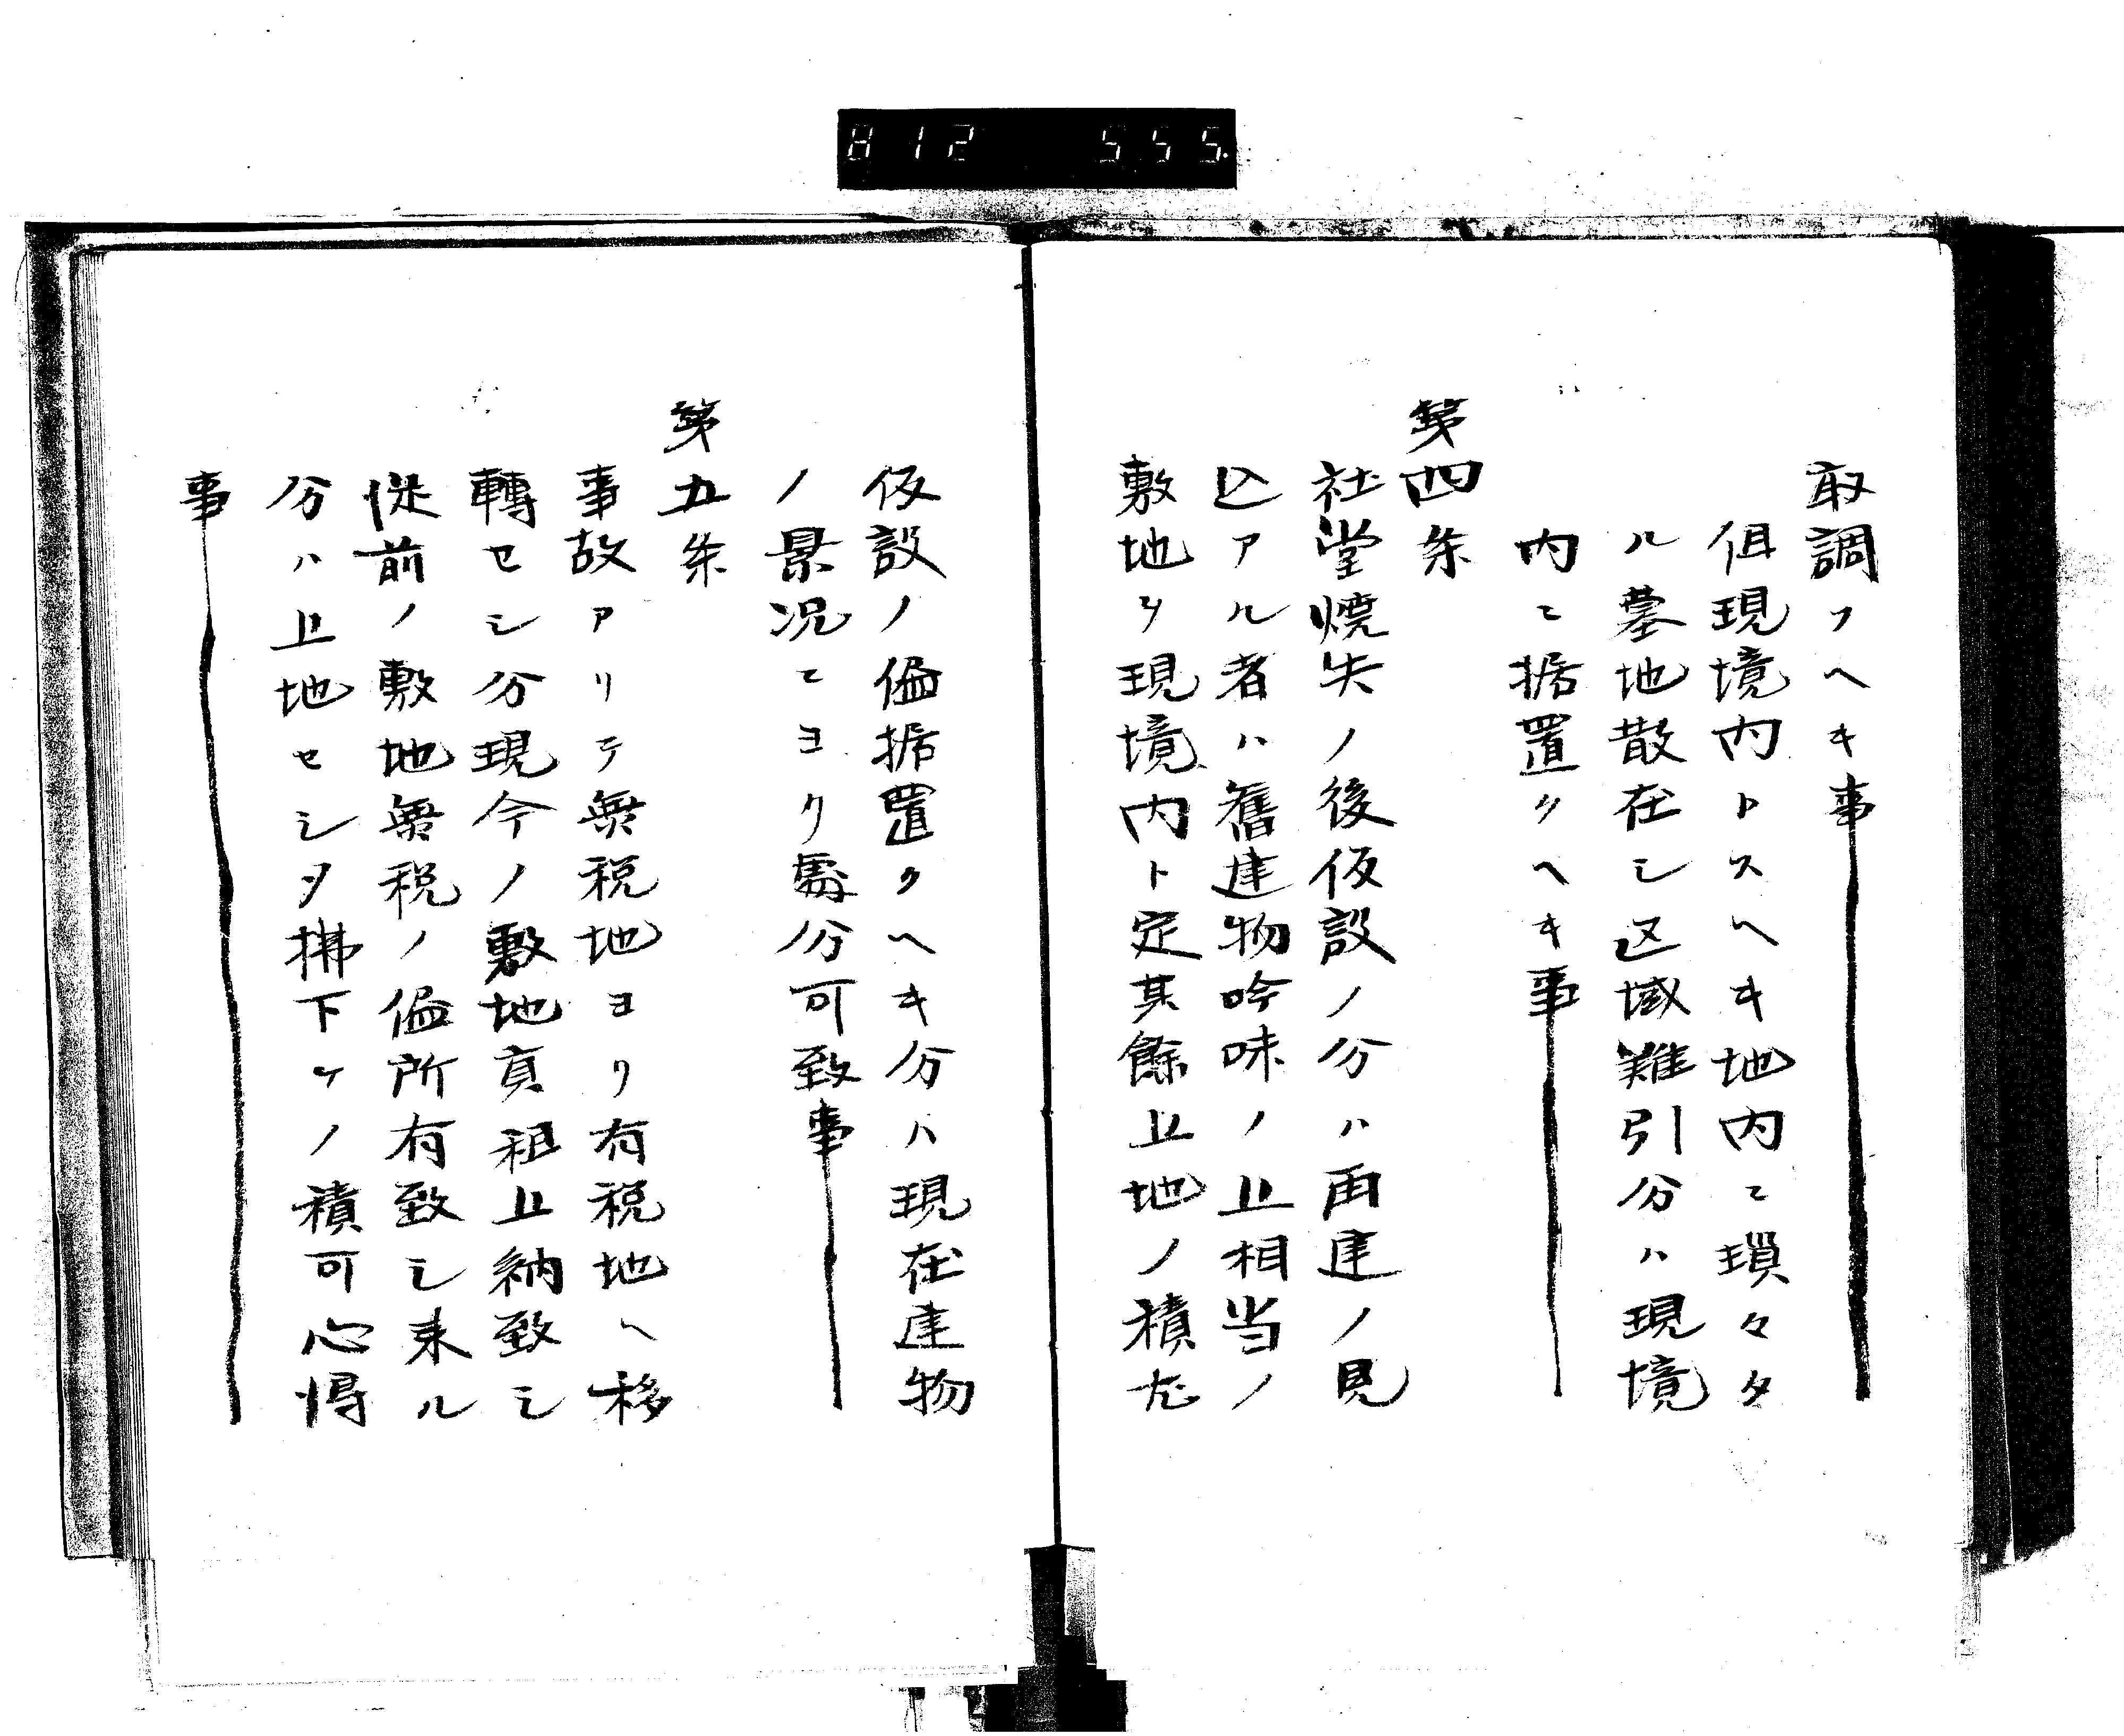 812 555
取調フヘキ事
但現境内トスヘキ地内ニ瑣々タ
ル墓地散在シ区域難引分ハ現境
内ニ据置クヘキ事
第四条
社堂焼失ノ後仮設ノ分ハ再建ノ見
込アル者ハ舊建物吟味ノ上相当ノ
敷地ヲ現境内ト定其餘上地ノ積尤
仮設ノ侭据置クヘキ分ハ現在建物
ノ景况ニヨリ處分可致事
第五条
事故アリテ無税地ヨリ有税地ヘ移
轉セシ分現今ノ敷地貢租上納致シ
従前ノ敷地無税ノ侭所有致シ来ル
分ハ上地セシメ拂下ケノ積可心得
事